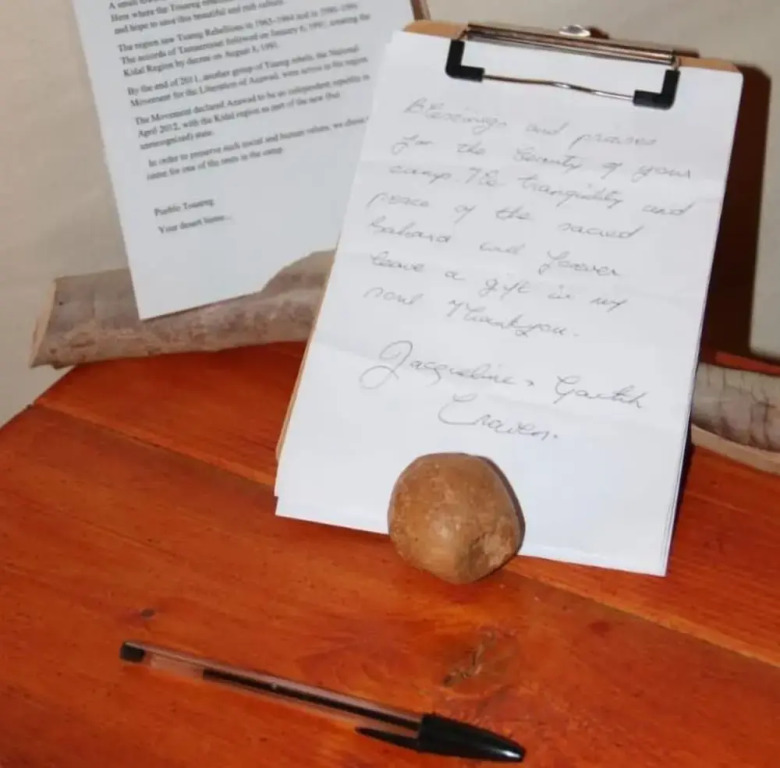 A small
Here where the Touareg
and hope to save this beautiful and rich culture.
The region saw Tuareg Rebellions in 1963-1964 and in 1990-1991.
The accords of Tamanrasset followed on January 6, 1991, creating the
Kidal Region by decree on August 8, 1991.
By the end of 2011, another group of Tuareg rebels, the National
Movement for the Liberation of Azawad, were active in the region.
The Movement declared Azawad to be an independent republic in
April 2012, with the Kidal region as part of the new (but
unrecognized) state.
In order to preserve such social and human values, we chose
name for one of the tents in the camp.
Pueblo Touareg.
Your desert home...
Blessings and praises
for the beauty of your
camp. The tranquility and
peace of the sacred
Sahara will forever
leave a gift in my
soul Thankyou.
Jacqueline & Gareth
Craven.